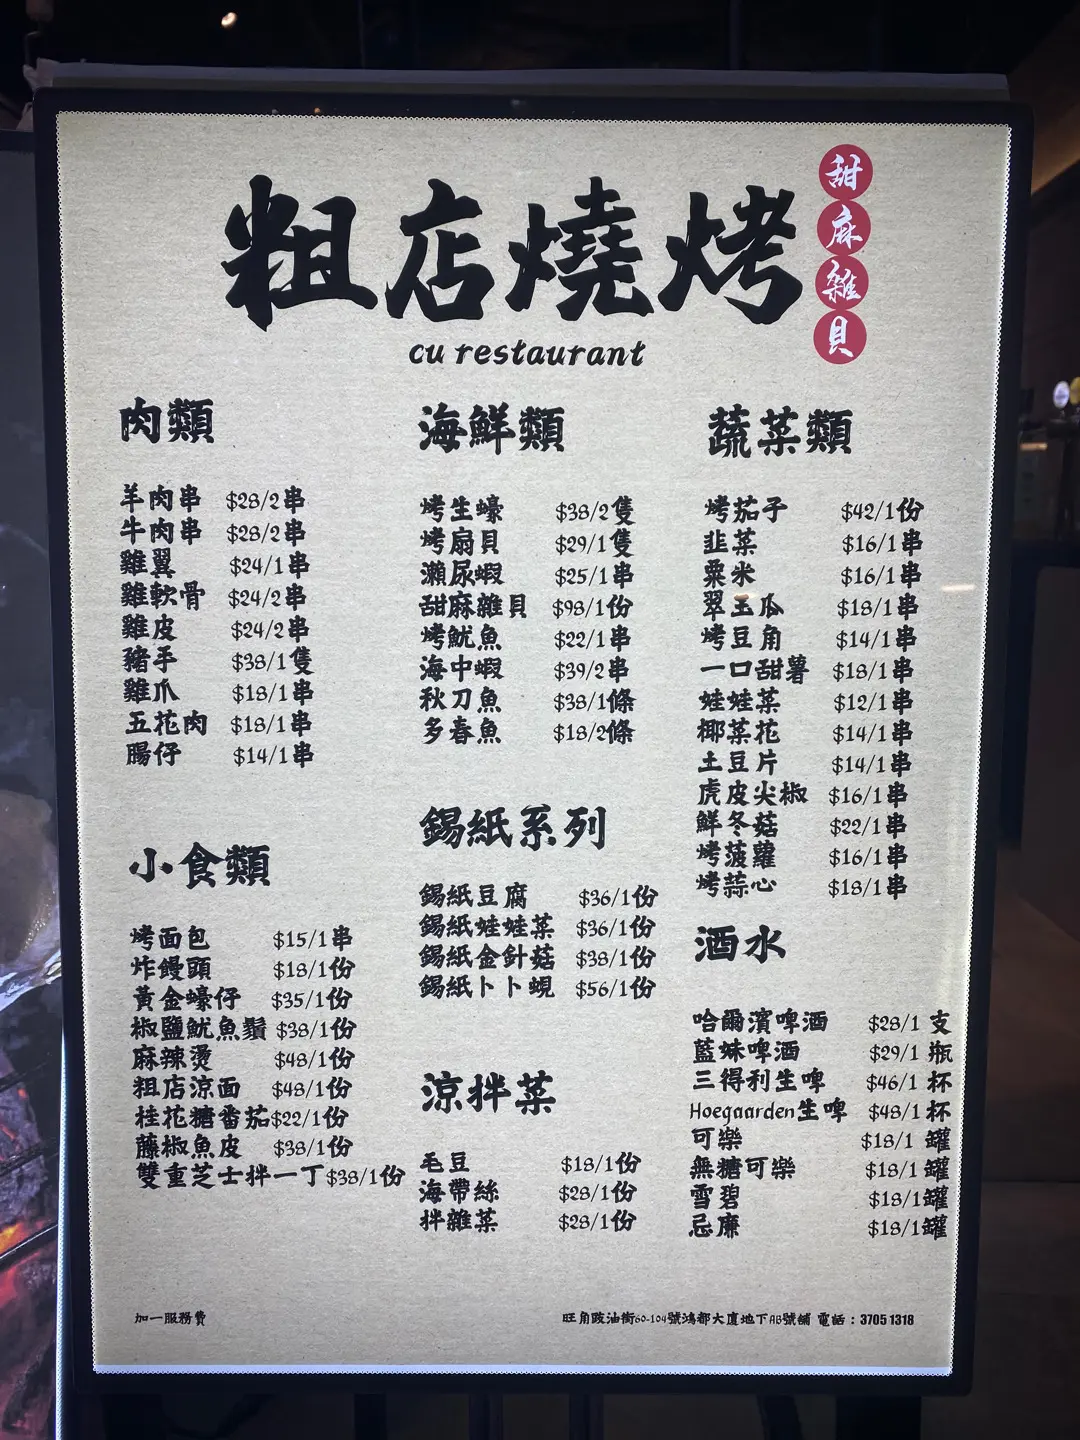 粗店燒烤
甜麻雜貝
cu restaurant
肉類
羊肉串 $28/2串
牛肉串 $28/2串
雞翼 $24/1串
雞軟骨 $24/2串
雞皮 $24/2串
豬手 $38/1隻
雞爪 $18/1串
五花肉 $18/1串
腸仔 $14/1串
小食類
烤面包 $15/1串
炸饅頭 $18/1份
黃金蠔仔 $35/1份
椒鹽魷魚鬚 $38/1份
麻辣燙 $48/1份
粗店涼面 $48/1份
桂花糖番茄$22/1份
藤椒魚皮 $38/1份
雙重芝士拌一丁$38/1份
海鮮類
烤生蠔 $38/2隻
烤扇貝 $29/1隻
瀨尿蝦 $25/1串
甜麻雜貝 $98/1份
烤魷魚 $22/1串
海中蝦 $39/2串
秋刀魚 $38/1條
多春魚 $18/2條
錫紙系列
錫紙豆腐 $36/1份
錫紙娃娃菜 $36/1份
錫紙金針菇 $38/1份
錫紙卜卜蜆 $56/1份
涼拌菜
毛豆 $18/1份
海帶絲 $28/1份
拌雜菜 $28/1份
蔬菜類
烤茄子 $42/1份
韭菜 $16/1串
粟米 $16/1串
翠玉瓜 $18/1串
烤豆角 $14/1串
一口甜薯 $18/1串
娃娃菜 $12/1串
椰菜花 $14/1串
土豆片 $14/1串
虎皮尖椒 $16/1串
鮮冬菇 $22/1串
烤菠蘿 $16/1串
烤蒜心 $18/1串
酒水
哈爾濱啤酒 $28/1 支
藍妹啤酒 $29/1 瓶
三得利生啤 $46/1 杯
Hoegaarden生啤 $48/1 杯
可樂 $18/1 罐
無糖可樂 $18/1 罐
雪碧 $18/1罐
忌廉 $18/1罐
加一服務費
旺角豉油街60-104號鴻都大廈地下AB號舖 電話：3705 1318